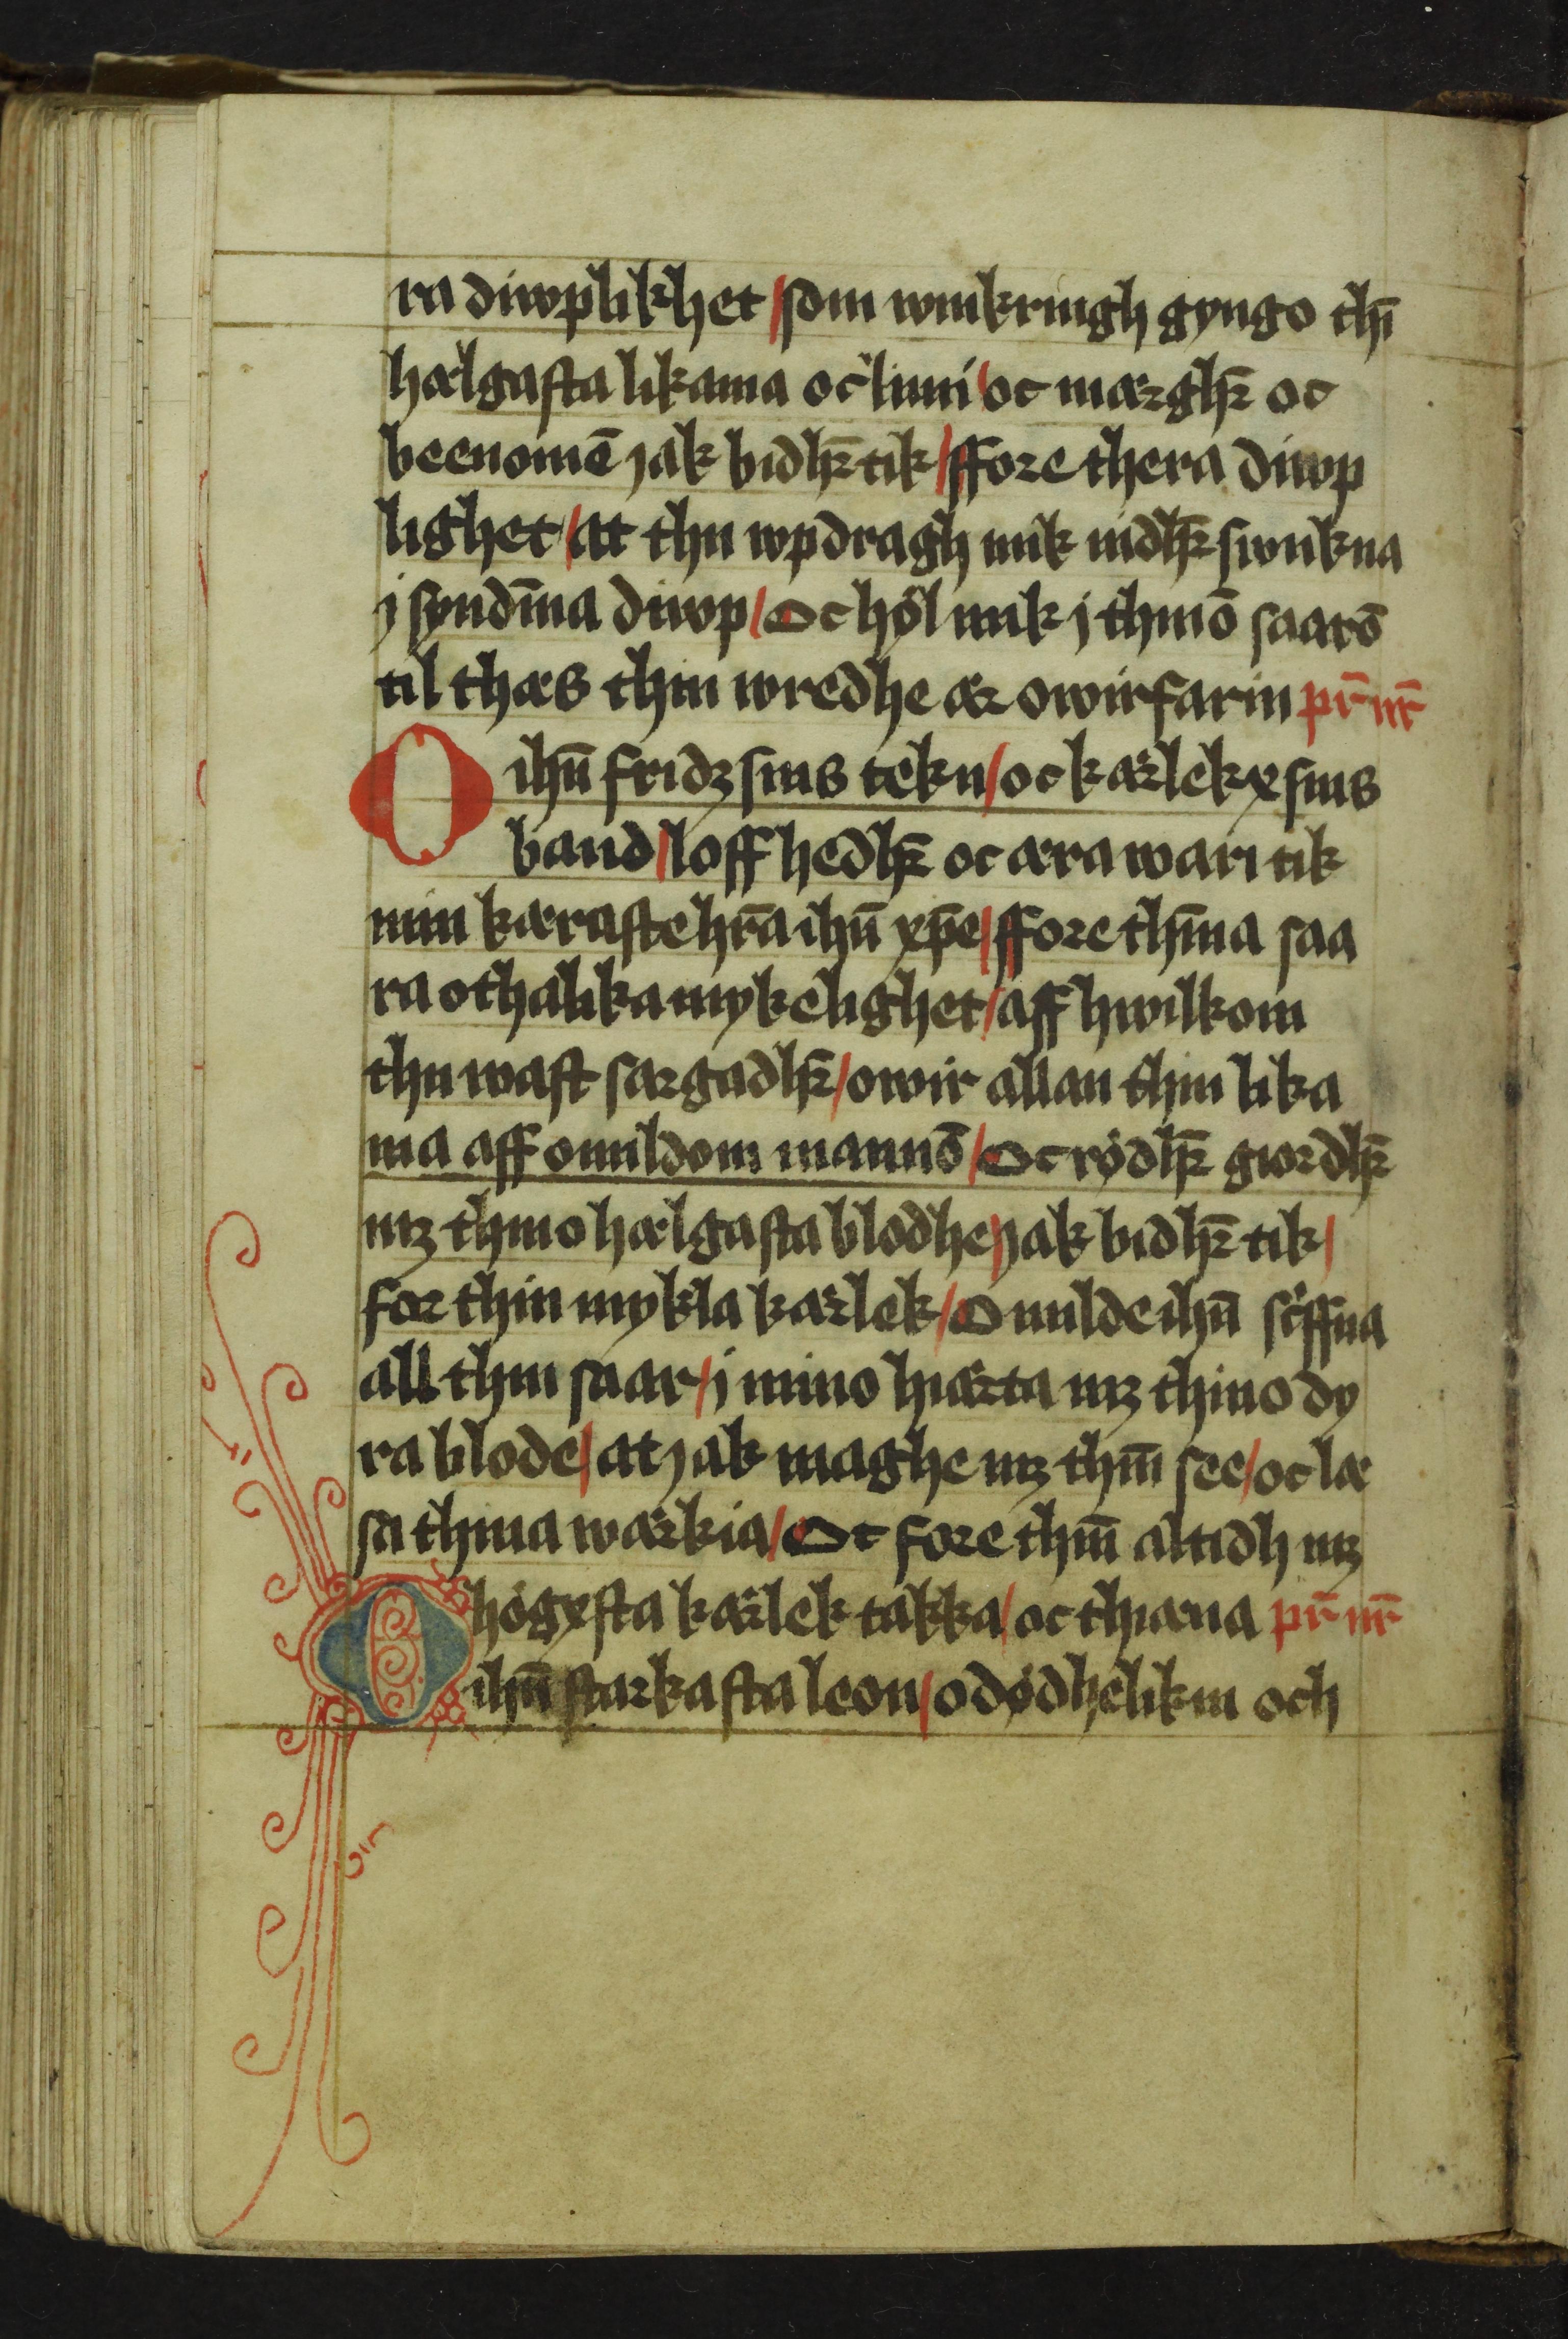 ra diwplikhet / som wmkringh gyngo thī
hælgasta likama oc limi / oc mærghr̄ oc
beenomē jak bidhr̄ tik / ffore thera diwp
lighet / at thu wpdragh mik nidhr̄ siwnkna
j syndīna diwp / Oc høl mik j thinō saarō
til thæs thin wredhe ær owirfarin pr̄ nr̄
O ihū fridz sins tekn / oc kærlekx sins
band / loff hedhr̄ oc æra wari tik
min kæraste hr̄a ihū xpē / ffore thīna saa
ra othalika mykelighet / aff hwilkom
thu wast sargadhr̄ / owir allan thin lika
ma aff omildom mannō / Oc rödhr̄ giordhr̄
mz thino hælgasta blodhe / jak bidhr̄ tik /
for thin mykla kærlek / O milde ihū sc̄ffua
all thin saar / j mino hiærta mz thino dy
ra blode / at jak maghe mz thm̄ see / oc læ
sa thina wærkia / Oc fore thm̄ altidh mz
högxsta kærlek takka / oc thiæna pr̄ nr̄
O ihū starkasta leon / odödhelikin och